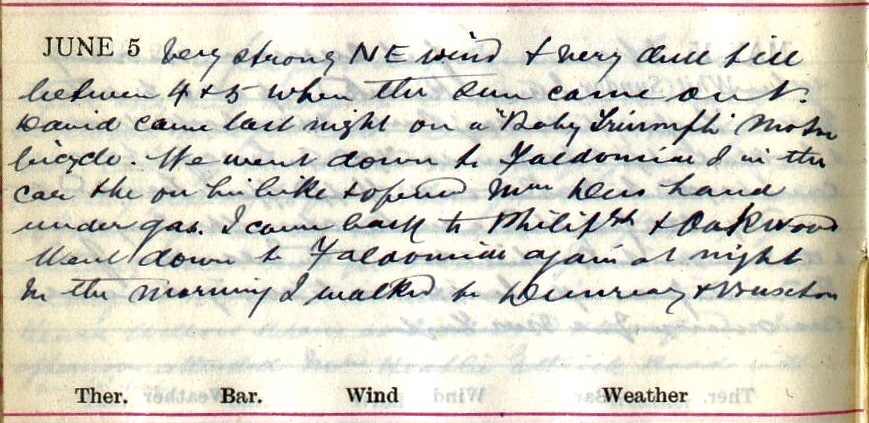 JUNE 5 Very strong NE wind & very dull till
between 4 & 5 when the sun came out.
David came last night on a "Baby Triumph" Motor
bicycle. We went down to I in the
car & he on his bike & opened Mrs hand
under gas. I came back to & Oakwood
Went down to again at night
In the morning I walked to &
Ther. Bar. Wind Weather